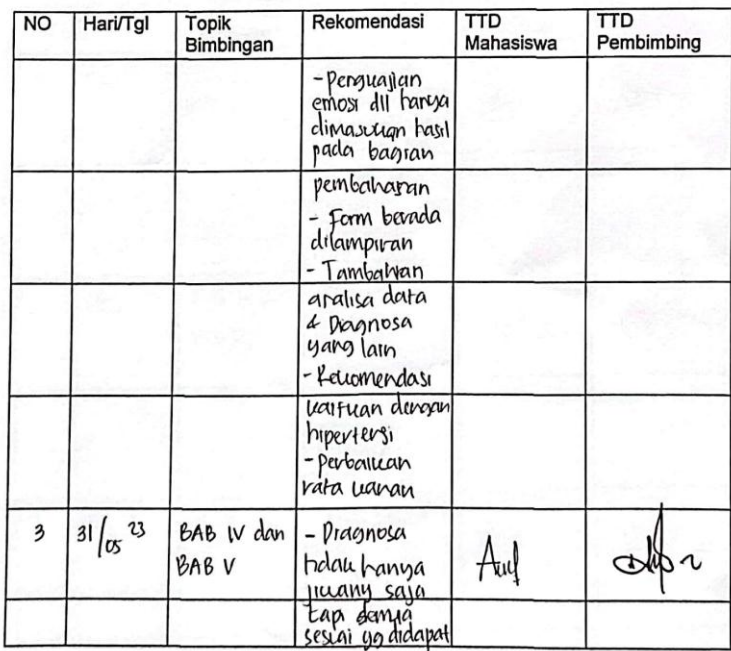 NO Hari/Tgl Topik Bimbingan Rekomendasi TTD Mahasiswa TTD Pembimbing
- Penguajian
emosi dll hanya
dimasukan hasil
pada bagian
pembahasan
- Form berada
dilampiran
- Tambahkan
analisa data
& Diagnosa
yang lain
- Rekomendasi
kaitkan dengan
hipertensi
- perbaikan
rata kanan
3 31/05 23 BAB IV dan BAB V
- Diagnosa
tidak hanya
saja
tapi semua
sesuai yg didapat